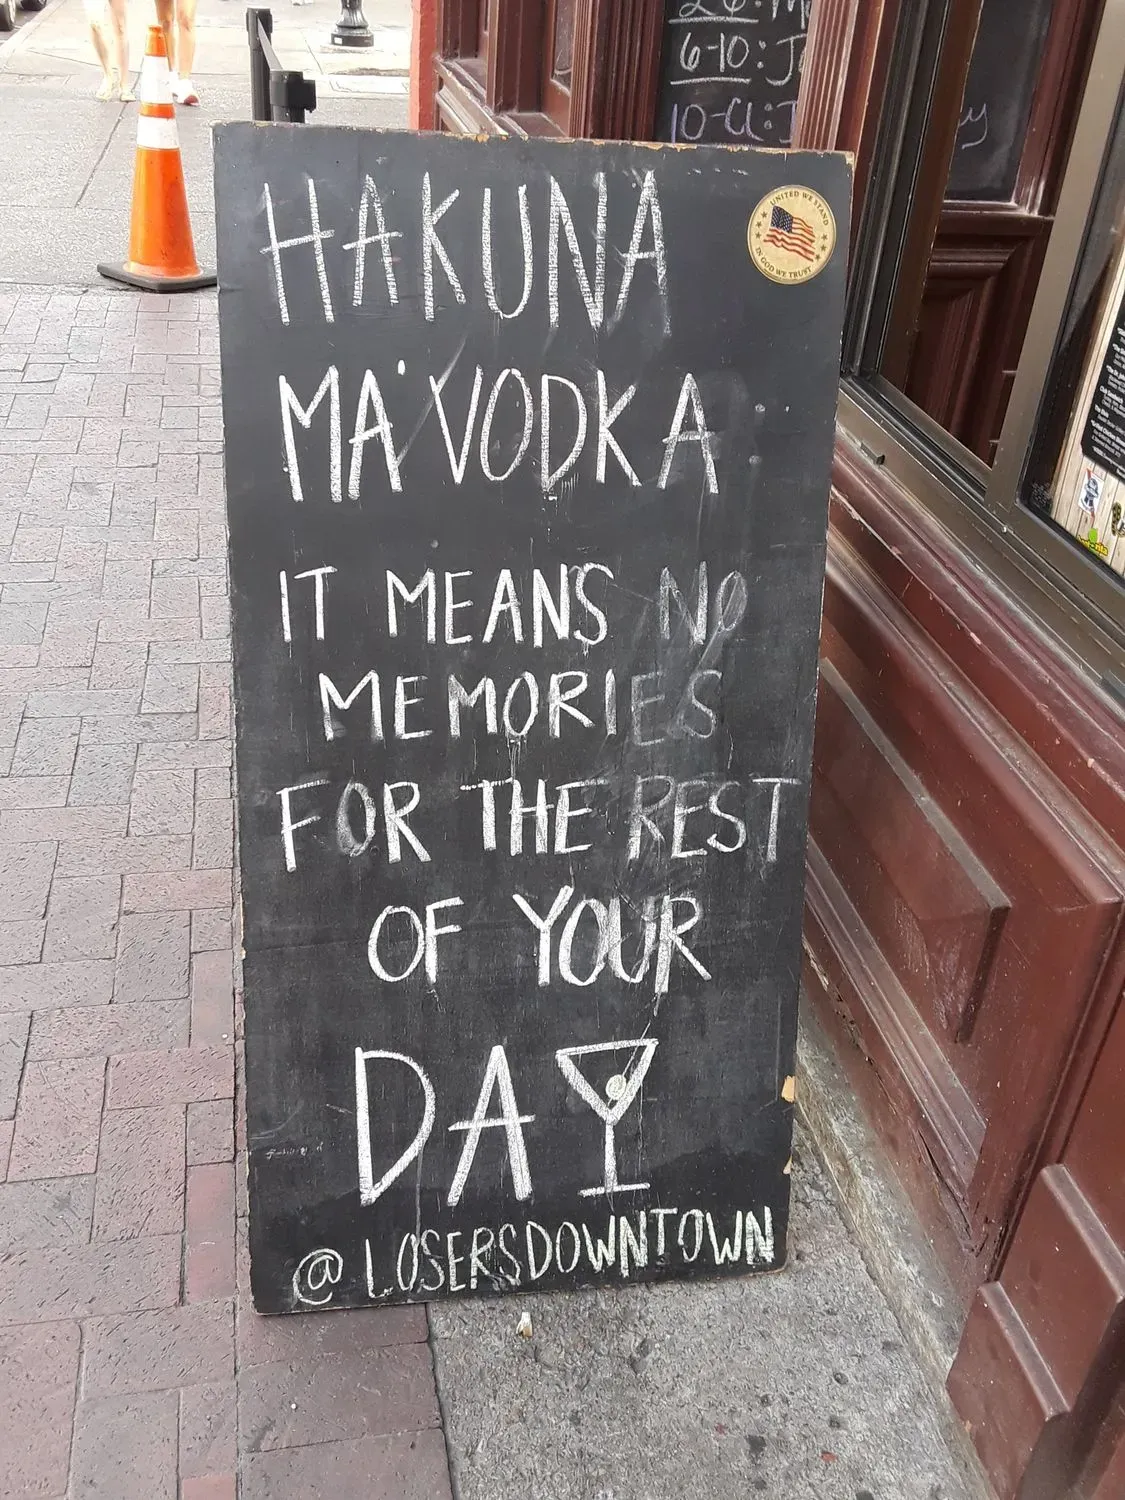 6-10: J
10-CL:
HAKUNA
UNITED WE STAND
IN GOD WE TRUST
MA'VODKA
IT MEANS NO
MEMORIES
FOR THE REST
OF YOUR
DAY
@LOSERSDOWNTOWN